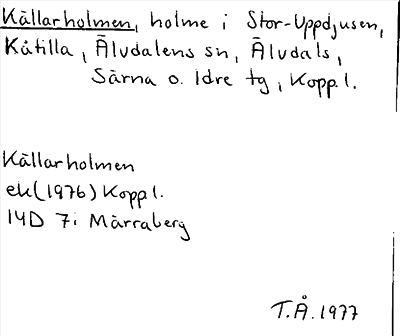 Källarholmen, holme i Stor-Uppdjusen,
Kåtilla, Älvdalens sn, Älvdals,
Särna o. Idre tg, Kopp.l.
Källarholmen
ek(1976) Kopp l.
14D 7i Märraberg
T.Å.1977